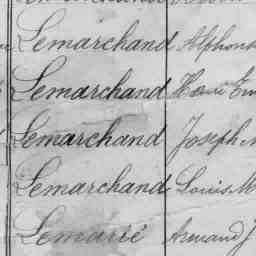 Lemarchand Alphons
Lemarchand Henri Em
Lemarchand Joseph M
Lemarchand Louis M
Lemarié Armand J